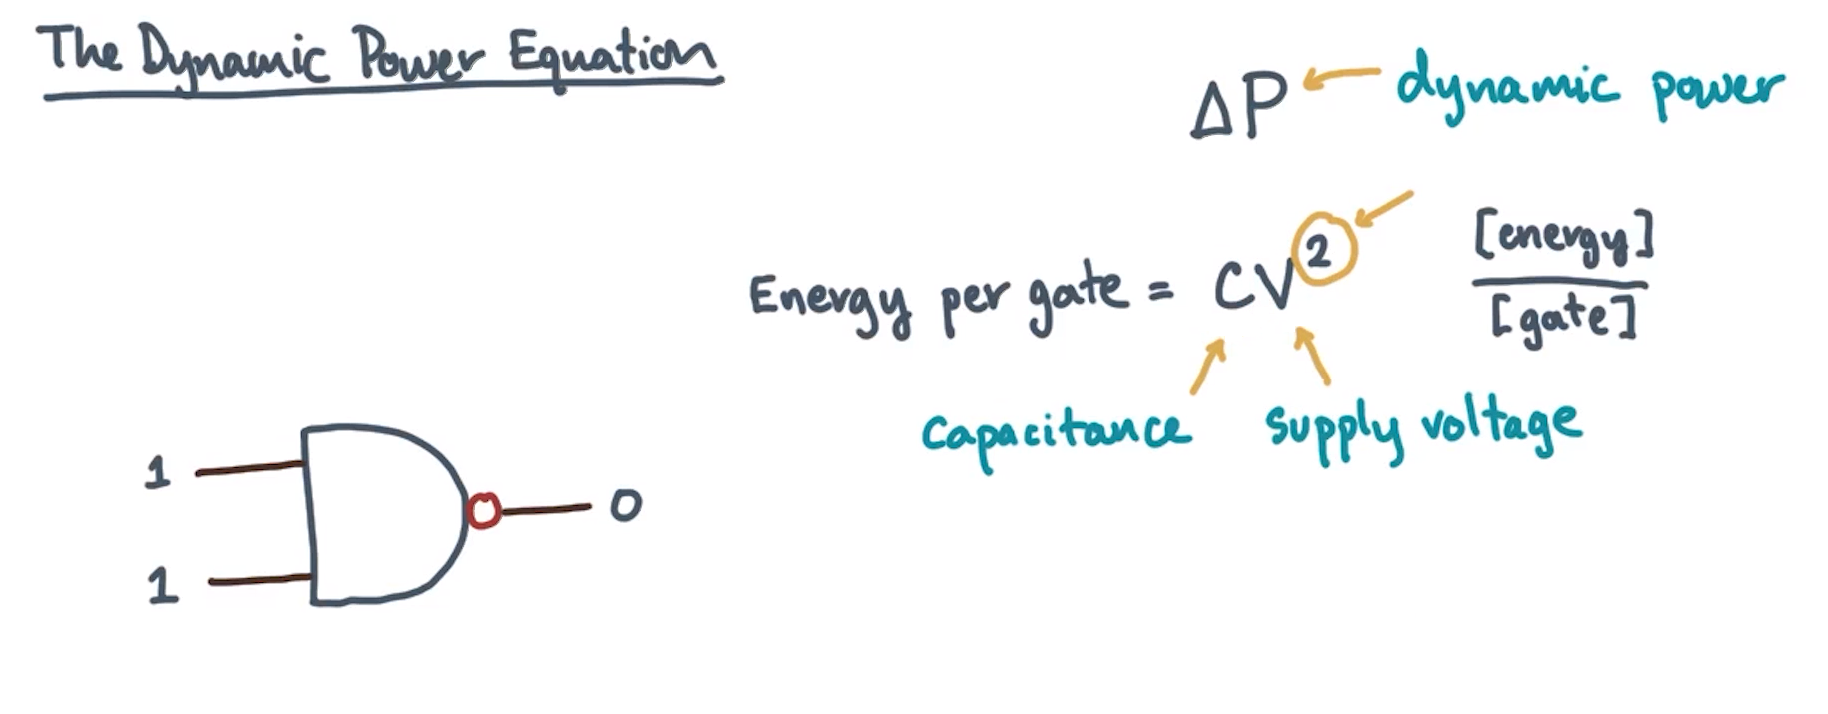 The Dynamic Power Equation
ΔP ← dynamic power
Energy per gate = CV² [energy]/[gate]
capacitance supply voltage
1
0
1